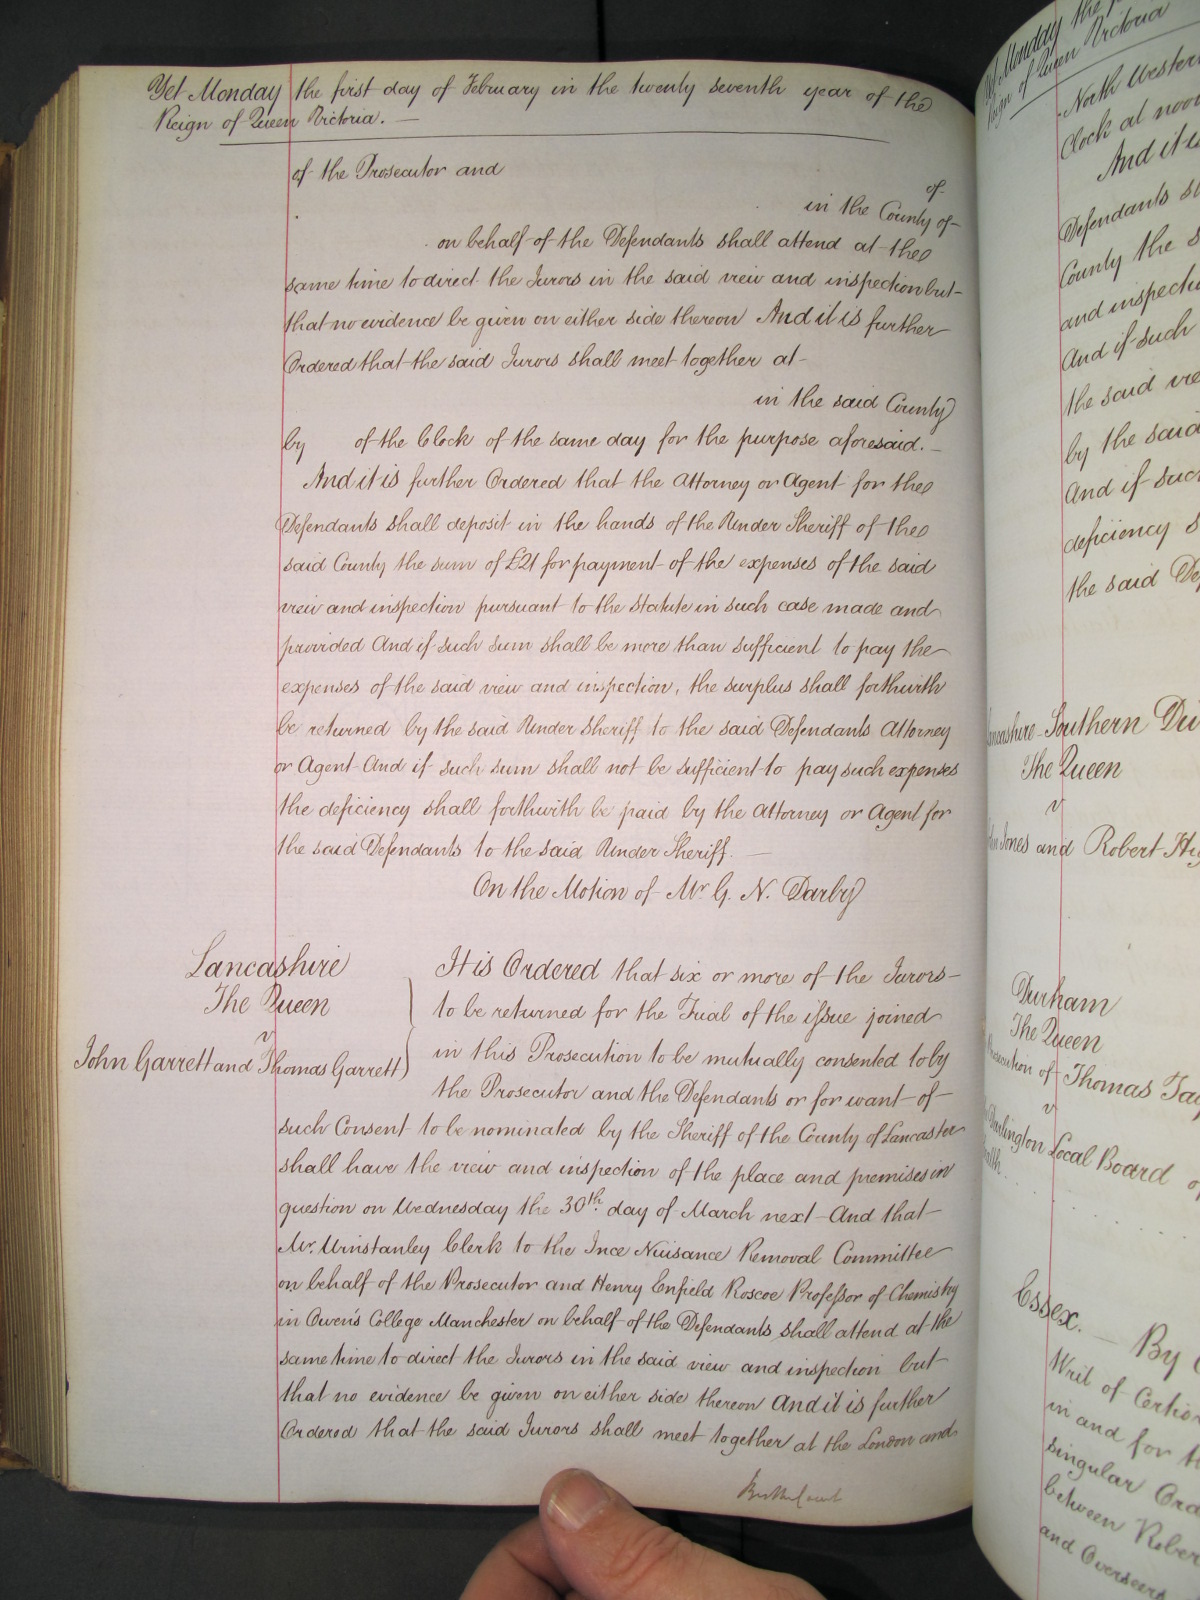 Yet Monday the first day of February in the twenty seventh year of the
Reign of Queen Victoria. —
of the Prosecutor and
of
in the County of
on behalf of the Defendants shall attend at the
same time to direct the Jurors in the said view and inspection but
that no evidence be given on either side thereon And it is further
Ordered that the said Jurors shall meet together at
in the said County
by of the Clock of the same day for the purpose aforesaid. —
And it is further Ordered that the Attorney or Agent for the
Defendants shall deposit in the hands of the Under Sheriff of the
said County the sum of £21 for payment of the expenses of the said
view and inspection pursuant to the Statute in such case made and
provided And if such sum shall be more than sufficient to pay the
expenses of the said view and inspection, the surplus shall forthwith
be returned by the said Under Sheriff to the said Defendants Attorney
or Agent And if such sum shall not be sufficient to pay such expenses
the deficiency shall forthwith be paid by the Attorney or Agent for
the said Defendants to the said Under Sheriff. —
On the Motion of Mr. G. N. Darby
Lancashire
The Queen
v
John Garrett and Thomas Garrett
It is Ordered that six or more of the Jurors
to be returned for the Trial of the issue joined
in this Prosecution to be mutually consented to by
the Prosecutor and the Defendants or for want of
such Consent to be nominated by the Sheriff of the County of Lancaster
shall have the view and inspection of the place and premises in
question on Wednesday the 30th. day of March next And that
Mr. Winstanley Clerk to the Ince Nuisance Removal Committee
on behalf of the Prosecutor and Henry Enfield Roscoe Professor of Chemistry
in Owen's College Manchester on behalf of the Defendants shall attend at the
same time to direct the Jurors in the said view and inspection but
that no evidence be given on either side thereon And it is further
Ordered that the said Jurors shall meet together at the London and
By the Court
Yet Monday the
Reign of Queen Victoria
North Western
Clock at noon
And it is
Defendants
County the
and inspection
And if such
the said
by the said
And if such
deficiency
the said
Southern
The Queen
v
Jones and Robert
Durham
The Queen
of Thomas
v
Darlington Local Board
Essex. — By
Writ of
in and for
singular
between
and Overseers